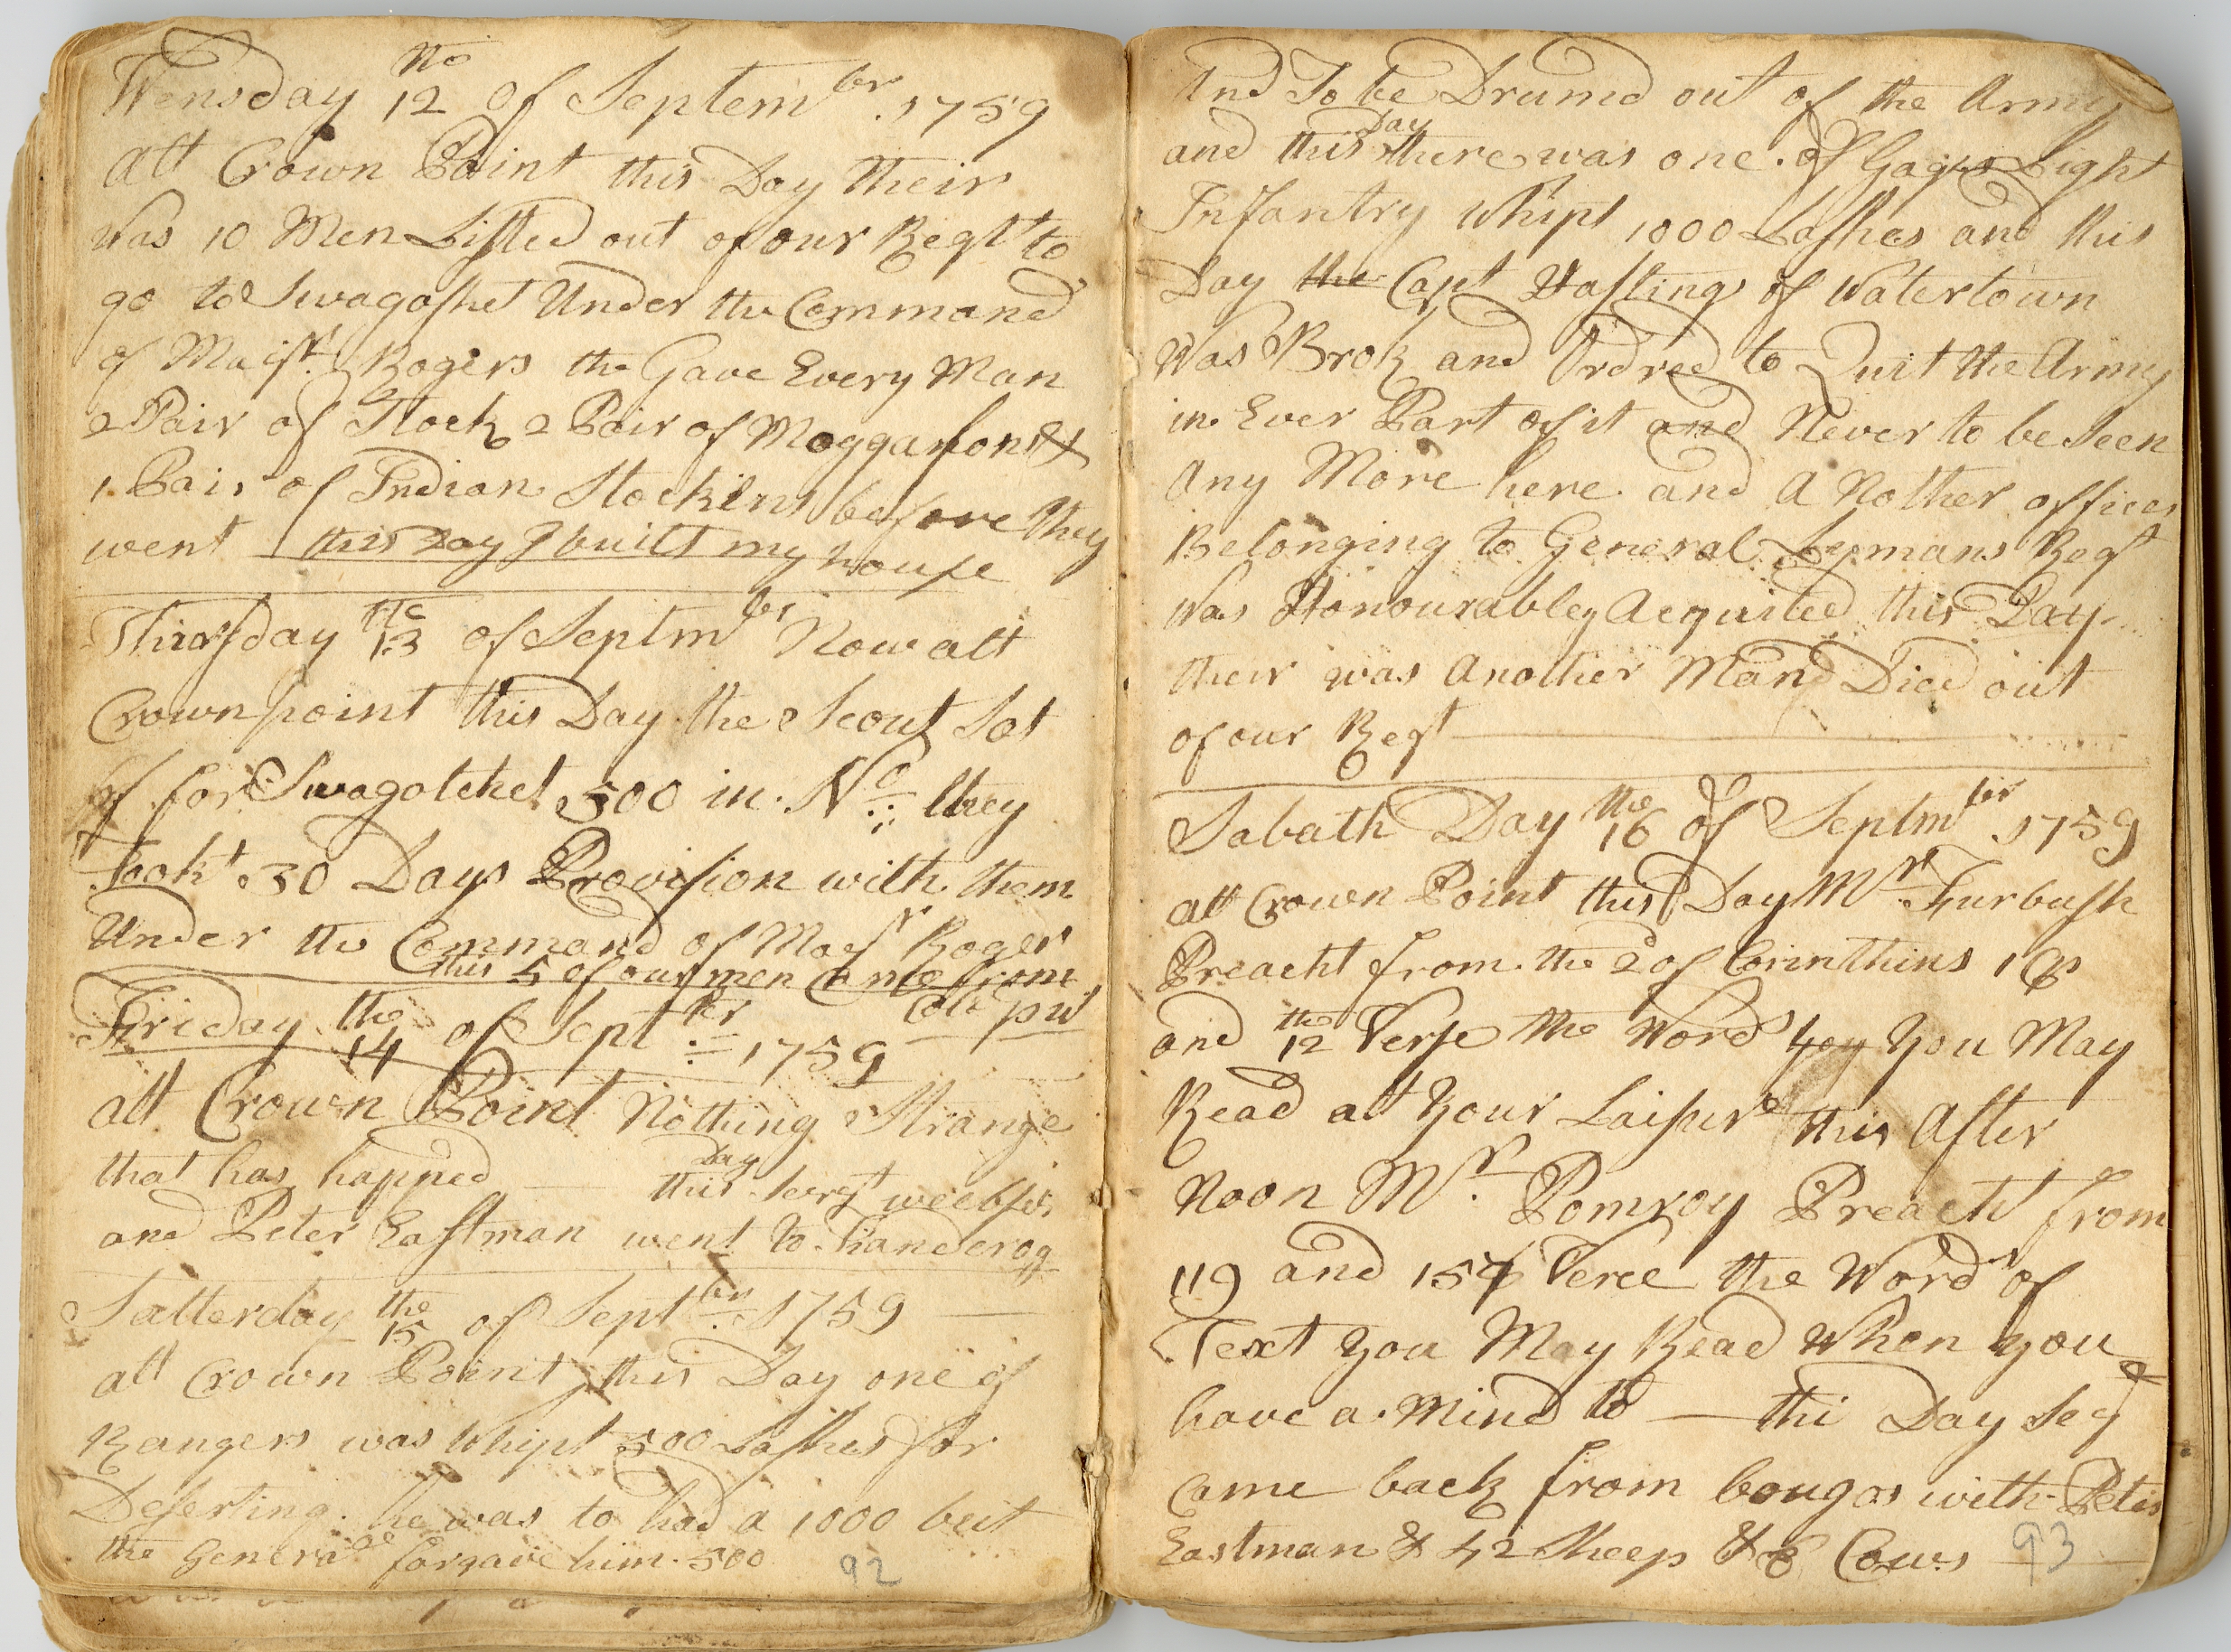 Wensday the 12 of Septembr 1759
att Crown Point this Day their
was 10 Men Listed out of our Regt to
go to Swagoshet Under the Command
of Majr Rogers the Gave Every Man
2 Pair of Stock 2 Pair of Moggasons &
1 Pair of Indian Stockins before they
went this Day I built my house
Thursday the 13 of Septmbr Now att
Crownpoint this Day the Scout Sot
of for Swagotchet 500 in No they
Took 30 Days Provision with them
Under the Command of Majr Roger
this 5 of our men Came from
Friday the 14 of Septbr 1759
att Crown Point Nothing Strange
that has happned this Day Sergt
and Peter Eastman went to
Satterday the 15 of Septbr 1759
att Crown Point this Day one of
Rangers was Whipt 500 Lashes for
Deserting he was to had a 1000 but
the General forgave him 500
92
And To be Drumd out of the Army
and this Day there was one of Gages Light
Infantry Whipt 1000 Lashes and this
Day the Capt Hastings of Watertown
Was Brok and Ordred to Quit the Army
in Ever Part of it and Never to be Seen
Any More here and A Nother officer
Belonging to General Lymans Regt
Was Honourabley Acquited this Day
their was Another Man Died out
of our Regt
Sabath Day the 16 of Septmbr 1759
att Crown Point this Day Mr Furbush
Preacht from the 2 of Corinthins 1 Cp
and the 12 Verse the Words You May
Read at Your Laisure this After
Noon Mr Pomroy Preacht from
119 and 154 Verce the Words of
Text You May Read When you
have a Mind to — thi Day Seg
Came back from bougos with Peter
Eastman & 42 Sheep & 8 Cows
93